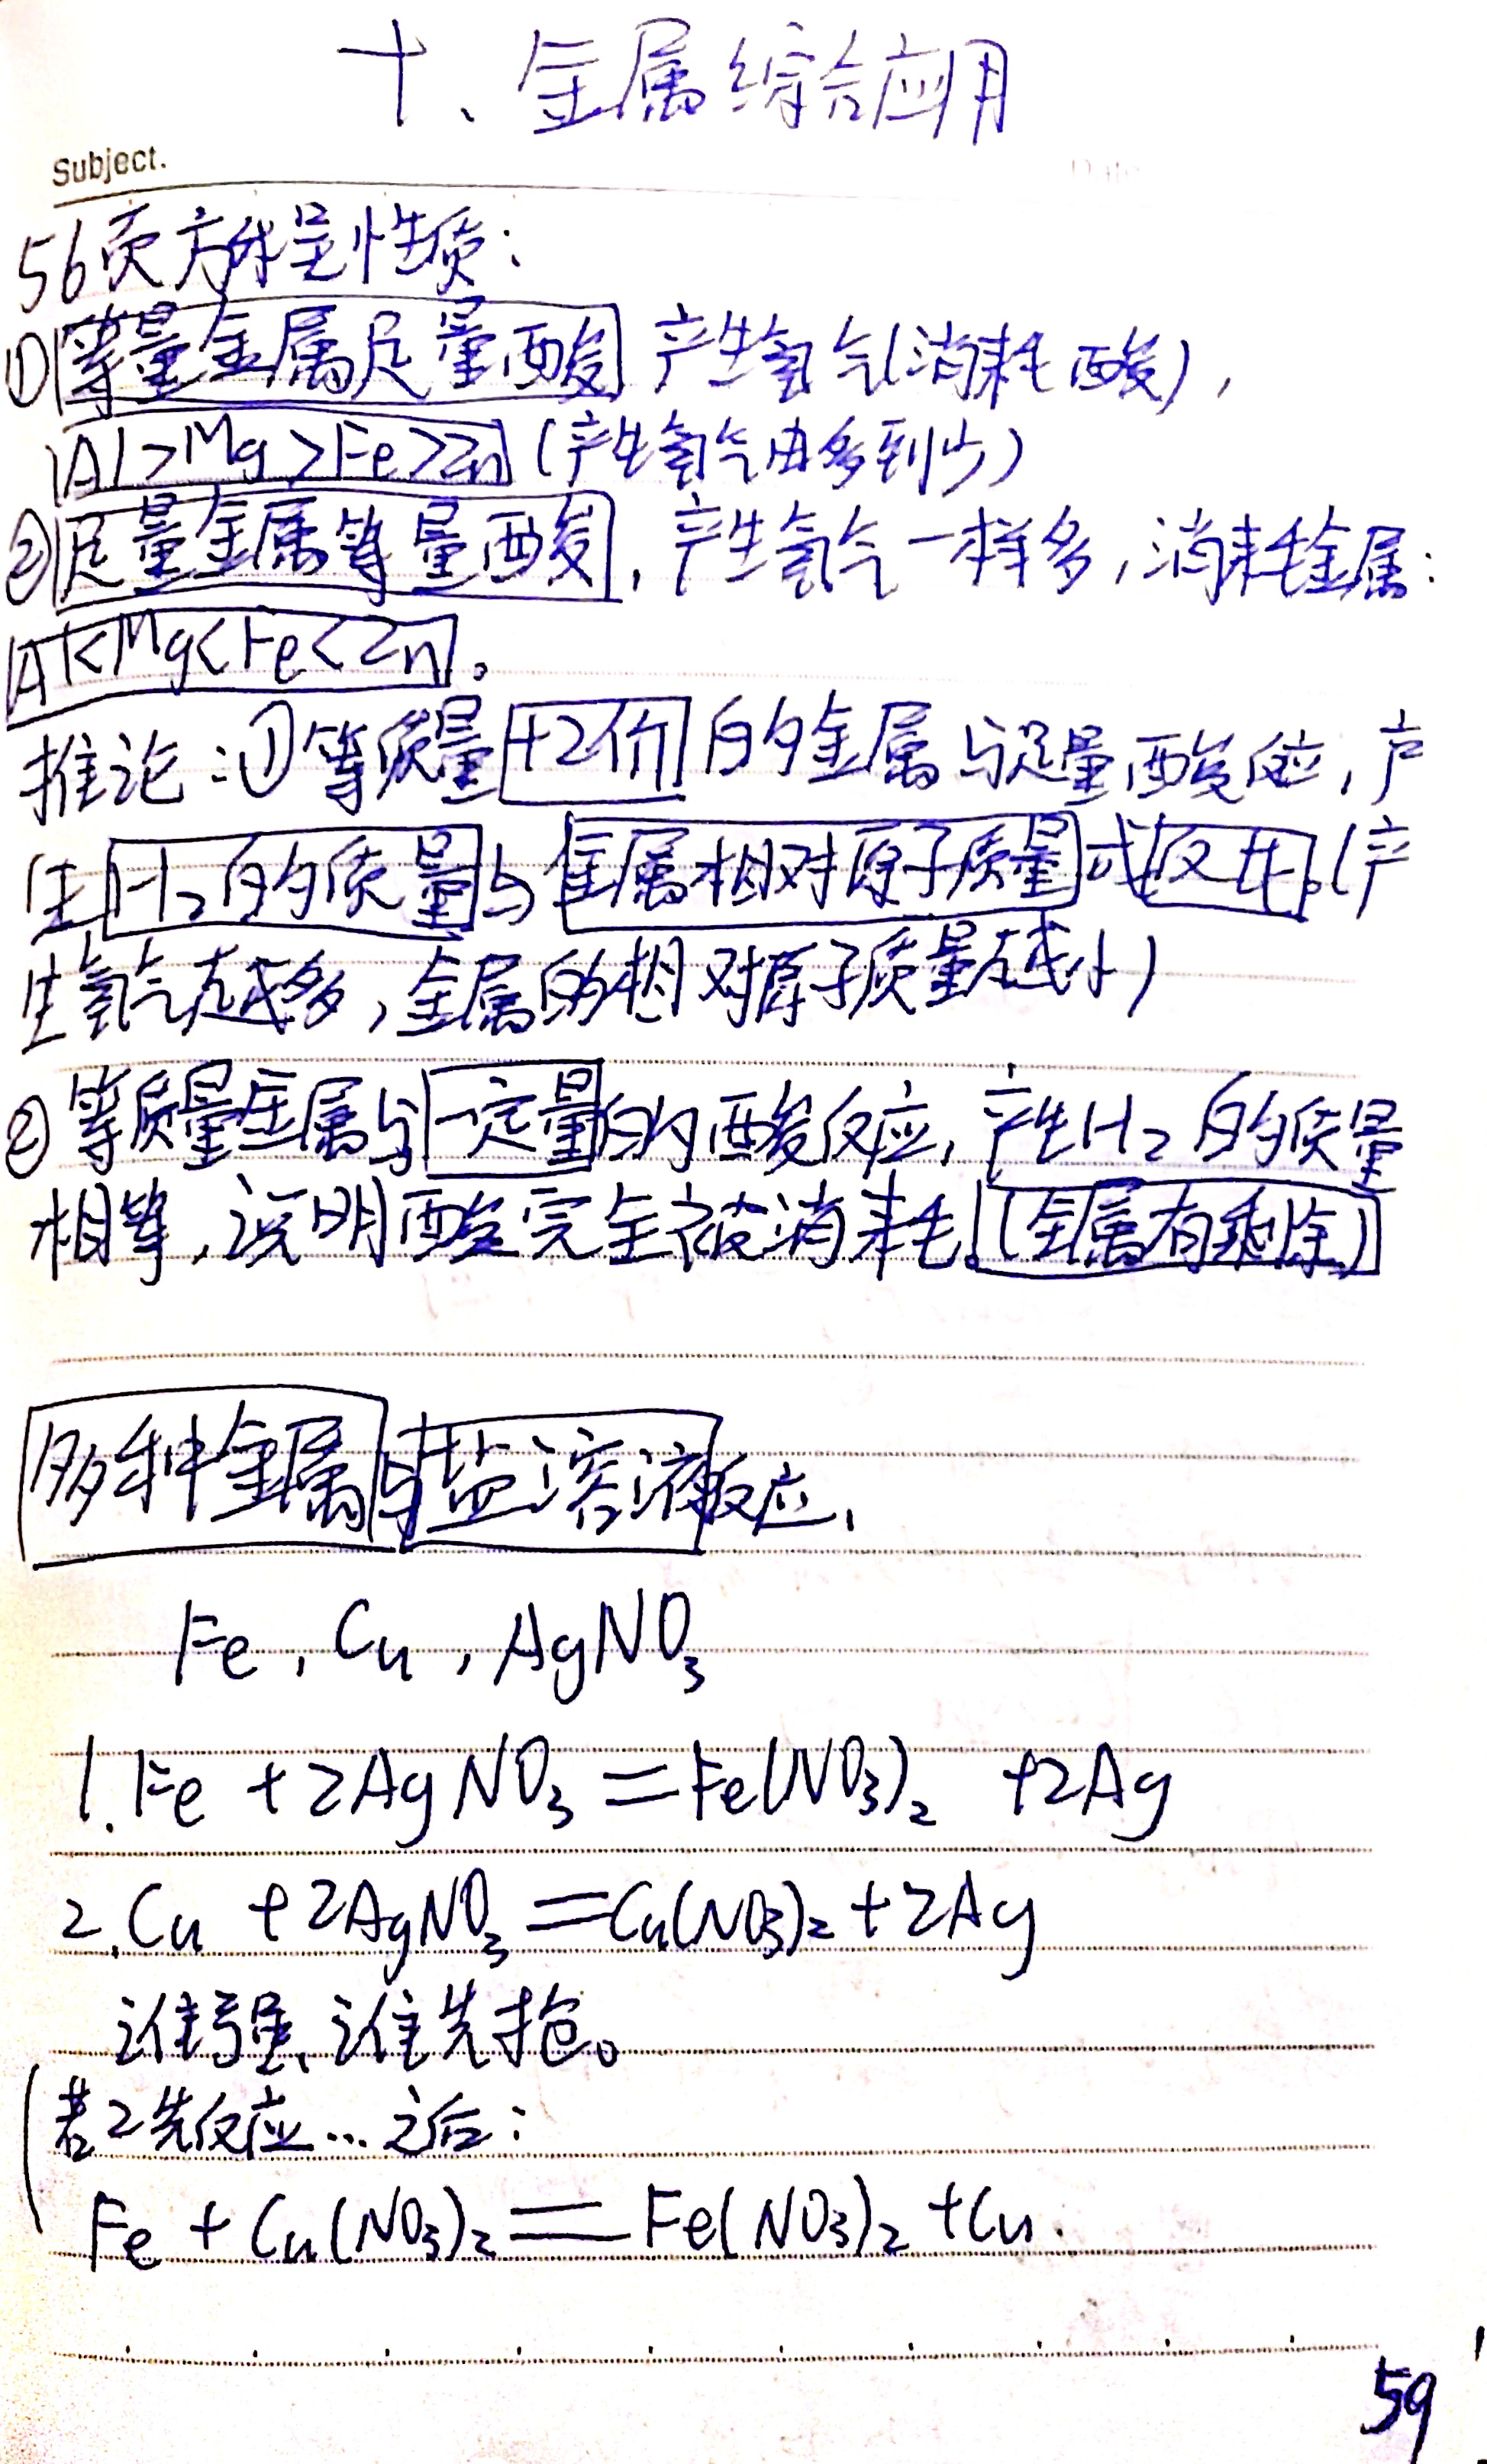 十、金属综合应用
Subject.
56页方程是性质:
①等量金属足量酸 产生氢气(消耗酸),
Al>Mg>Fe>Zn (产生氢气由多到少)
②足量金属等量酸, 产生氢气一样多,消耗金属:
Al<Mg<Fe<Zn。
推论:①等质量+2价的金属与足量酸反应,产
生H₂的质量与金属相对原子质量成反比。(产
生氢气越多,金属的相对原子质量越小)
②等质量金属与一定量的酸反应,产生H₂的质量
相等,说明酸完全被消耗。(金属有剩余)
多种金属与盐溶液反应,
Fe,Cu,AgNO₃
1.Fe+2AgNO₃=Fe(NO₃)₂+2Ag
2.Cu+2AgNO₃=Cu(NO₃)₂+2Ag
谁强、谁先抢。
(若2先反应…之后:
Fe+Cu(NO₃)₂=Fe(NO₃)₂+Cu.
59